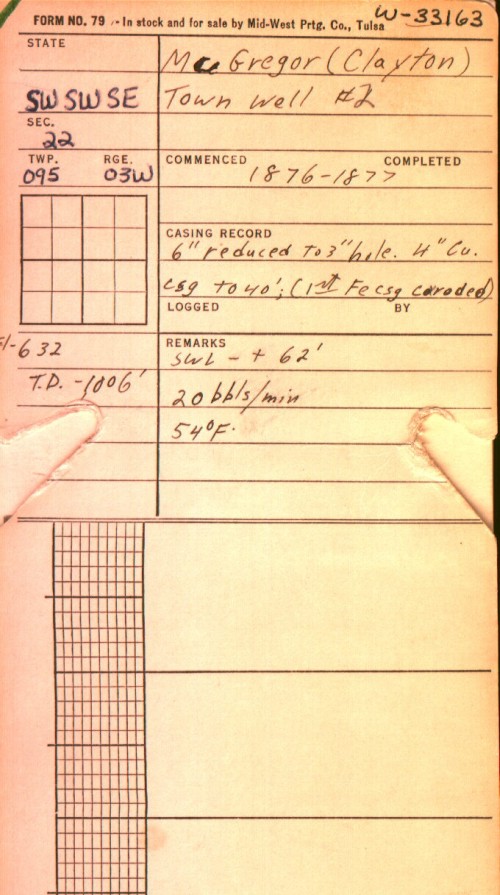 W-33163
FORM NO. 79 - In stock and for sale by Mid-West Prtg. Co., Tulsa
STATE
Mc Gregor (Clayton)
SW SW SE
Town well #2
SEC.
22
TWP. RGE.
095 03W
COMMENCED COMPLETED
1876-1877
CASING RECORD
6" reduced to 3" hole. 4" Cu.
csg to 40'; (1st Fe csg coroded)
LOGGED BY
632
REMARKS
SWL - + 62'
T.D. - 1006'
20 bbls/min
54°F.